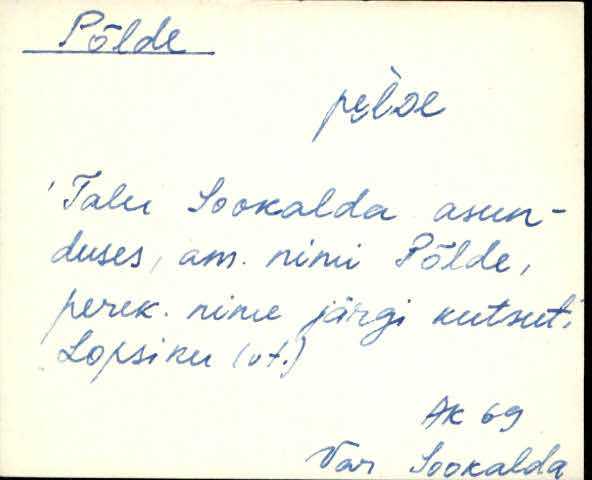 Põlde
pe̮l̀de
Talu Sookalda asun-
duses, am. nimi Põlde,
perek. nime järgi kutsuti
Lopsiku (vt.)
AK 69
Var Sookalda